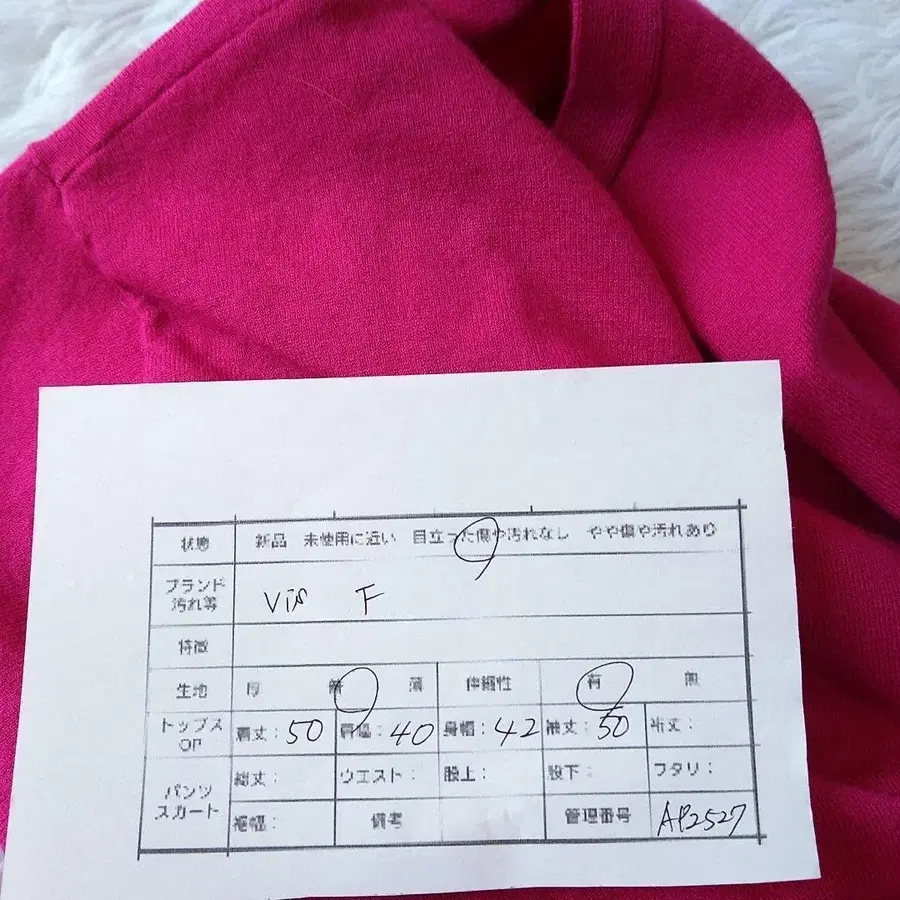 状態 新品 未使用に近い 目立った傷や汚れなし やや傷や汚れあり
ブランド
汚れ等
Vis F
特徴
生地 厚 普 薄 伸縮性 有 無
トップス
OP
肩丈：50 肩幅：40 身幅：42 袖丈：50 裄丈：
パンツ
スカート
総丈： ウエスト： 股上： 股下： ワタリ：
裾幅： 備考 管理番号 AP2527